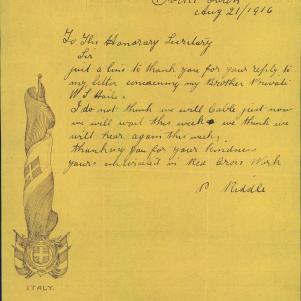 Aug 21/1916
To The Honorary Secretary
Sir
just a line to thank you for your reply to
my letter concerning my Brother Private
W J
I do not think we will Cable just now
we will wait this week we think we
will hear again this week,
thanking you for your kindness
yours interested in Red Cross Work
Riddle
ITALY.